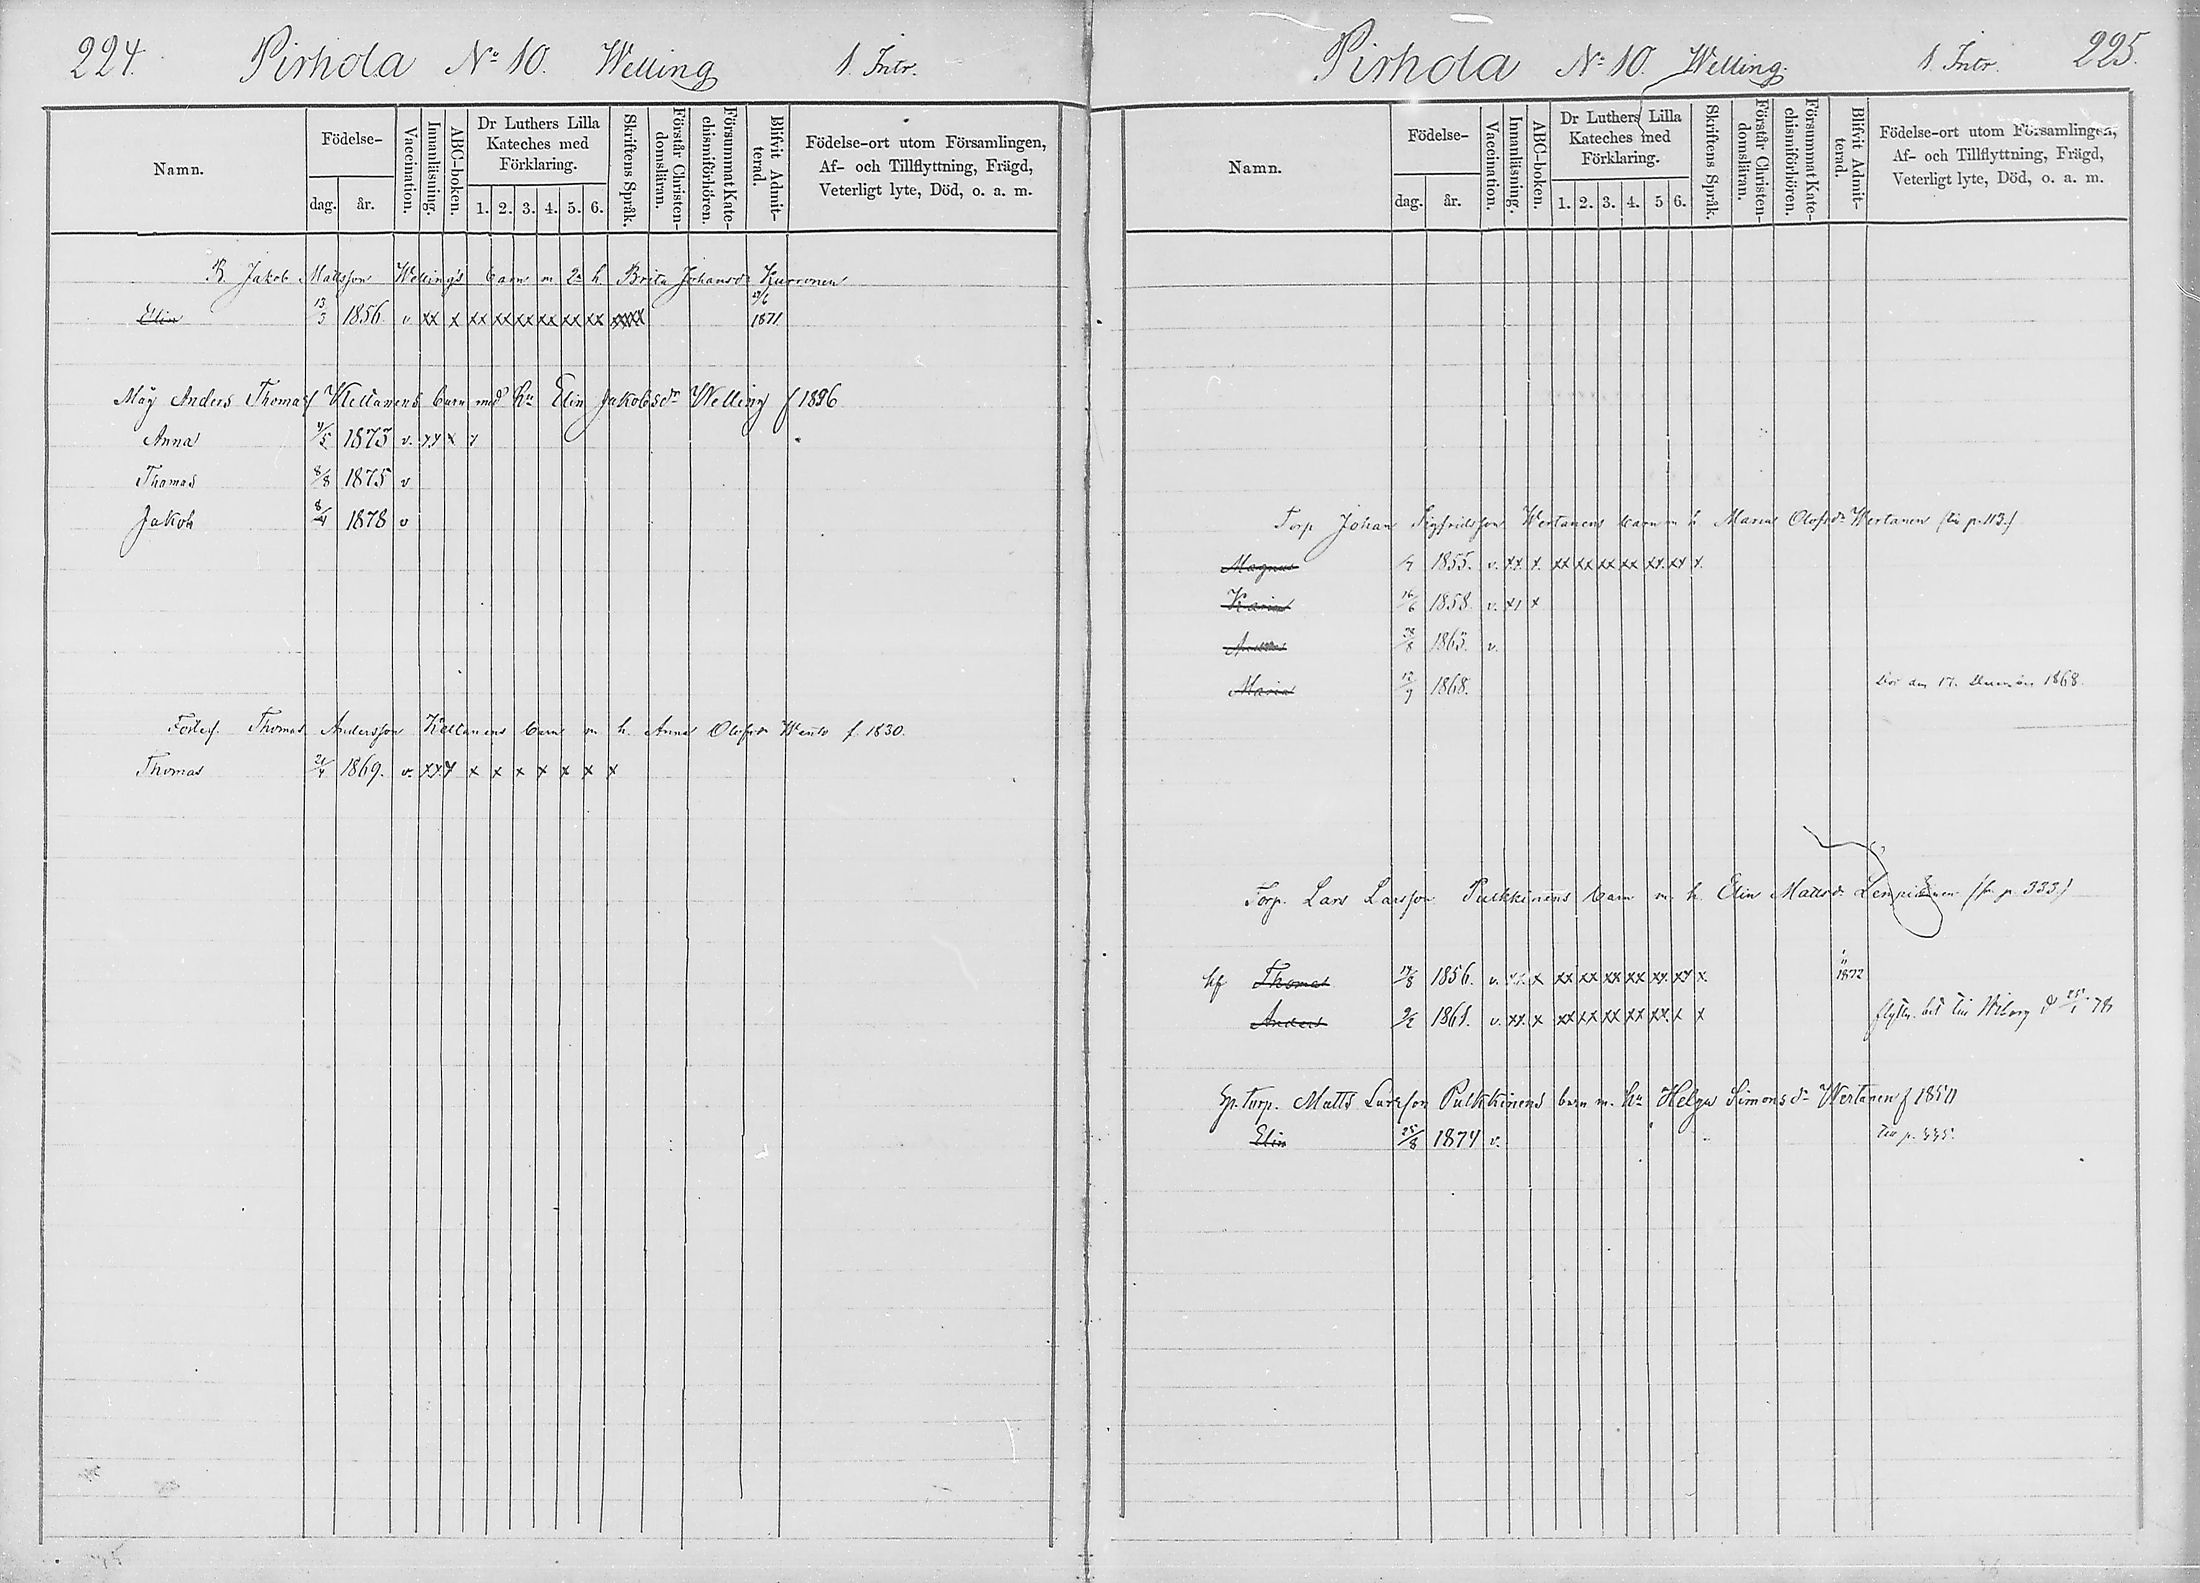 224. Pirhola No 10. Welling 1. Intr.
Namn.
Födelse-
dag. år.
Vaccination.
Innanläsning.
ABC-boken.
Dr Luthers Lilla
Kateches med
Förklaring.
1. 2. 3. 4. 5. 6.
Skriftens Språk.
Förstår Christen-
domsläran.
Försummat Kate-
chismiförhören.
Blifvit Admit-
terad.
Födelse-ort utom Församlingen,
Af- och Tillflyttning, Frägd,
Veterligt lyte, Död, o. a. m.
B. Jakob Mattsson Welling's barn m 2a h Brita Johansdr Kurronen
Elin 13/3 1856 v xx x xx xx xx xx xx xx xxxx 1871
Måg Anders Thomasf Kiettanens barn med hu Elin Jakobsdr Welling f 1836
Anna 1873 v. xx x x
Thomas 8/8 1875 v
Jakob 8/4 1878 v
Thomas Andersson Kettanens barn m h. Anna Olofsdr Wento f. 1830.
Thomas 21/4 1869. v. xx x x x x x x x x
Pirhola No 10. Welling. 1. Intr. 225.
Namn.
Födelse-
dag. år.
Vaccination.
Innanläsning.
ABC-boken.
Dr Luthers Lilla
Kateches med
Förklaring.
1. 2. 3. 4. 5 6.
Skriftens Språk.
Förstår Christen-
domsläran.
Försummat Kate-
chismiförhören.
Blifvit Admit-
terad.
Födelse-ort utom Församlingen,
Af- och Tillflyttning, Frägd,
Veterligt lyte, Död, o. a. m.
Torp Johan Sigfridsson Wertanens barn m h Maria Olofsdr Wertanen (till p. 113.)
Magnus 1855. v. xx x. xx xx xx xx xx xx x.
Karin 16/6 1858. v. xx x
Anders 1863. v.
Maria 12/9 1868. Död den 17. December 1868.
Torp. Lars Larsson Pulkkinens barn m. h. Elin Mattsdr Lempiäinen (fr p. 333.)
Thomas 17/8 1856. v. xx x xx xx xx xx xx xx x. 1872
Anders 9/2 1861. v. xx x xx xx xx xx xx x x flytt. bet. till Wiborg d 25/1 78
Sp. torp. Matts Larsson Pulkkinens barn m. hu Helga Simonsdr Wertanen f 1850
Elin 25/8 1874 v. till p. 335.